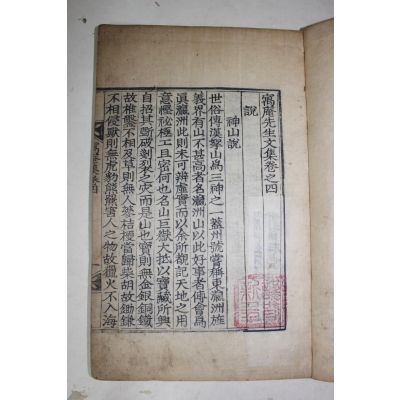 寓庵先生文集卷之四
說
神山說
世俗傳漢拏山爲三神之一蓋州號嘗稱東瀛洲旌
義界有山不甚高者名瀛洲山以此好事者傅會爲
眞瀛洲此則未可辨虛實而以余所觀記天地之用
意慳祕極工且密何也名山巨嶽大抵以寶藏所興
自招其斲破剝裂之灾而是山也寶則無金銀銅鐵
故椎鑿不相及草則無人蔘桔梗當歸柴胡故鋤鎌
不相侵獸則無虎豹熊羆害人之物故獵火不入海